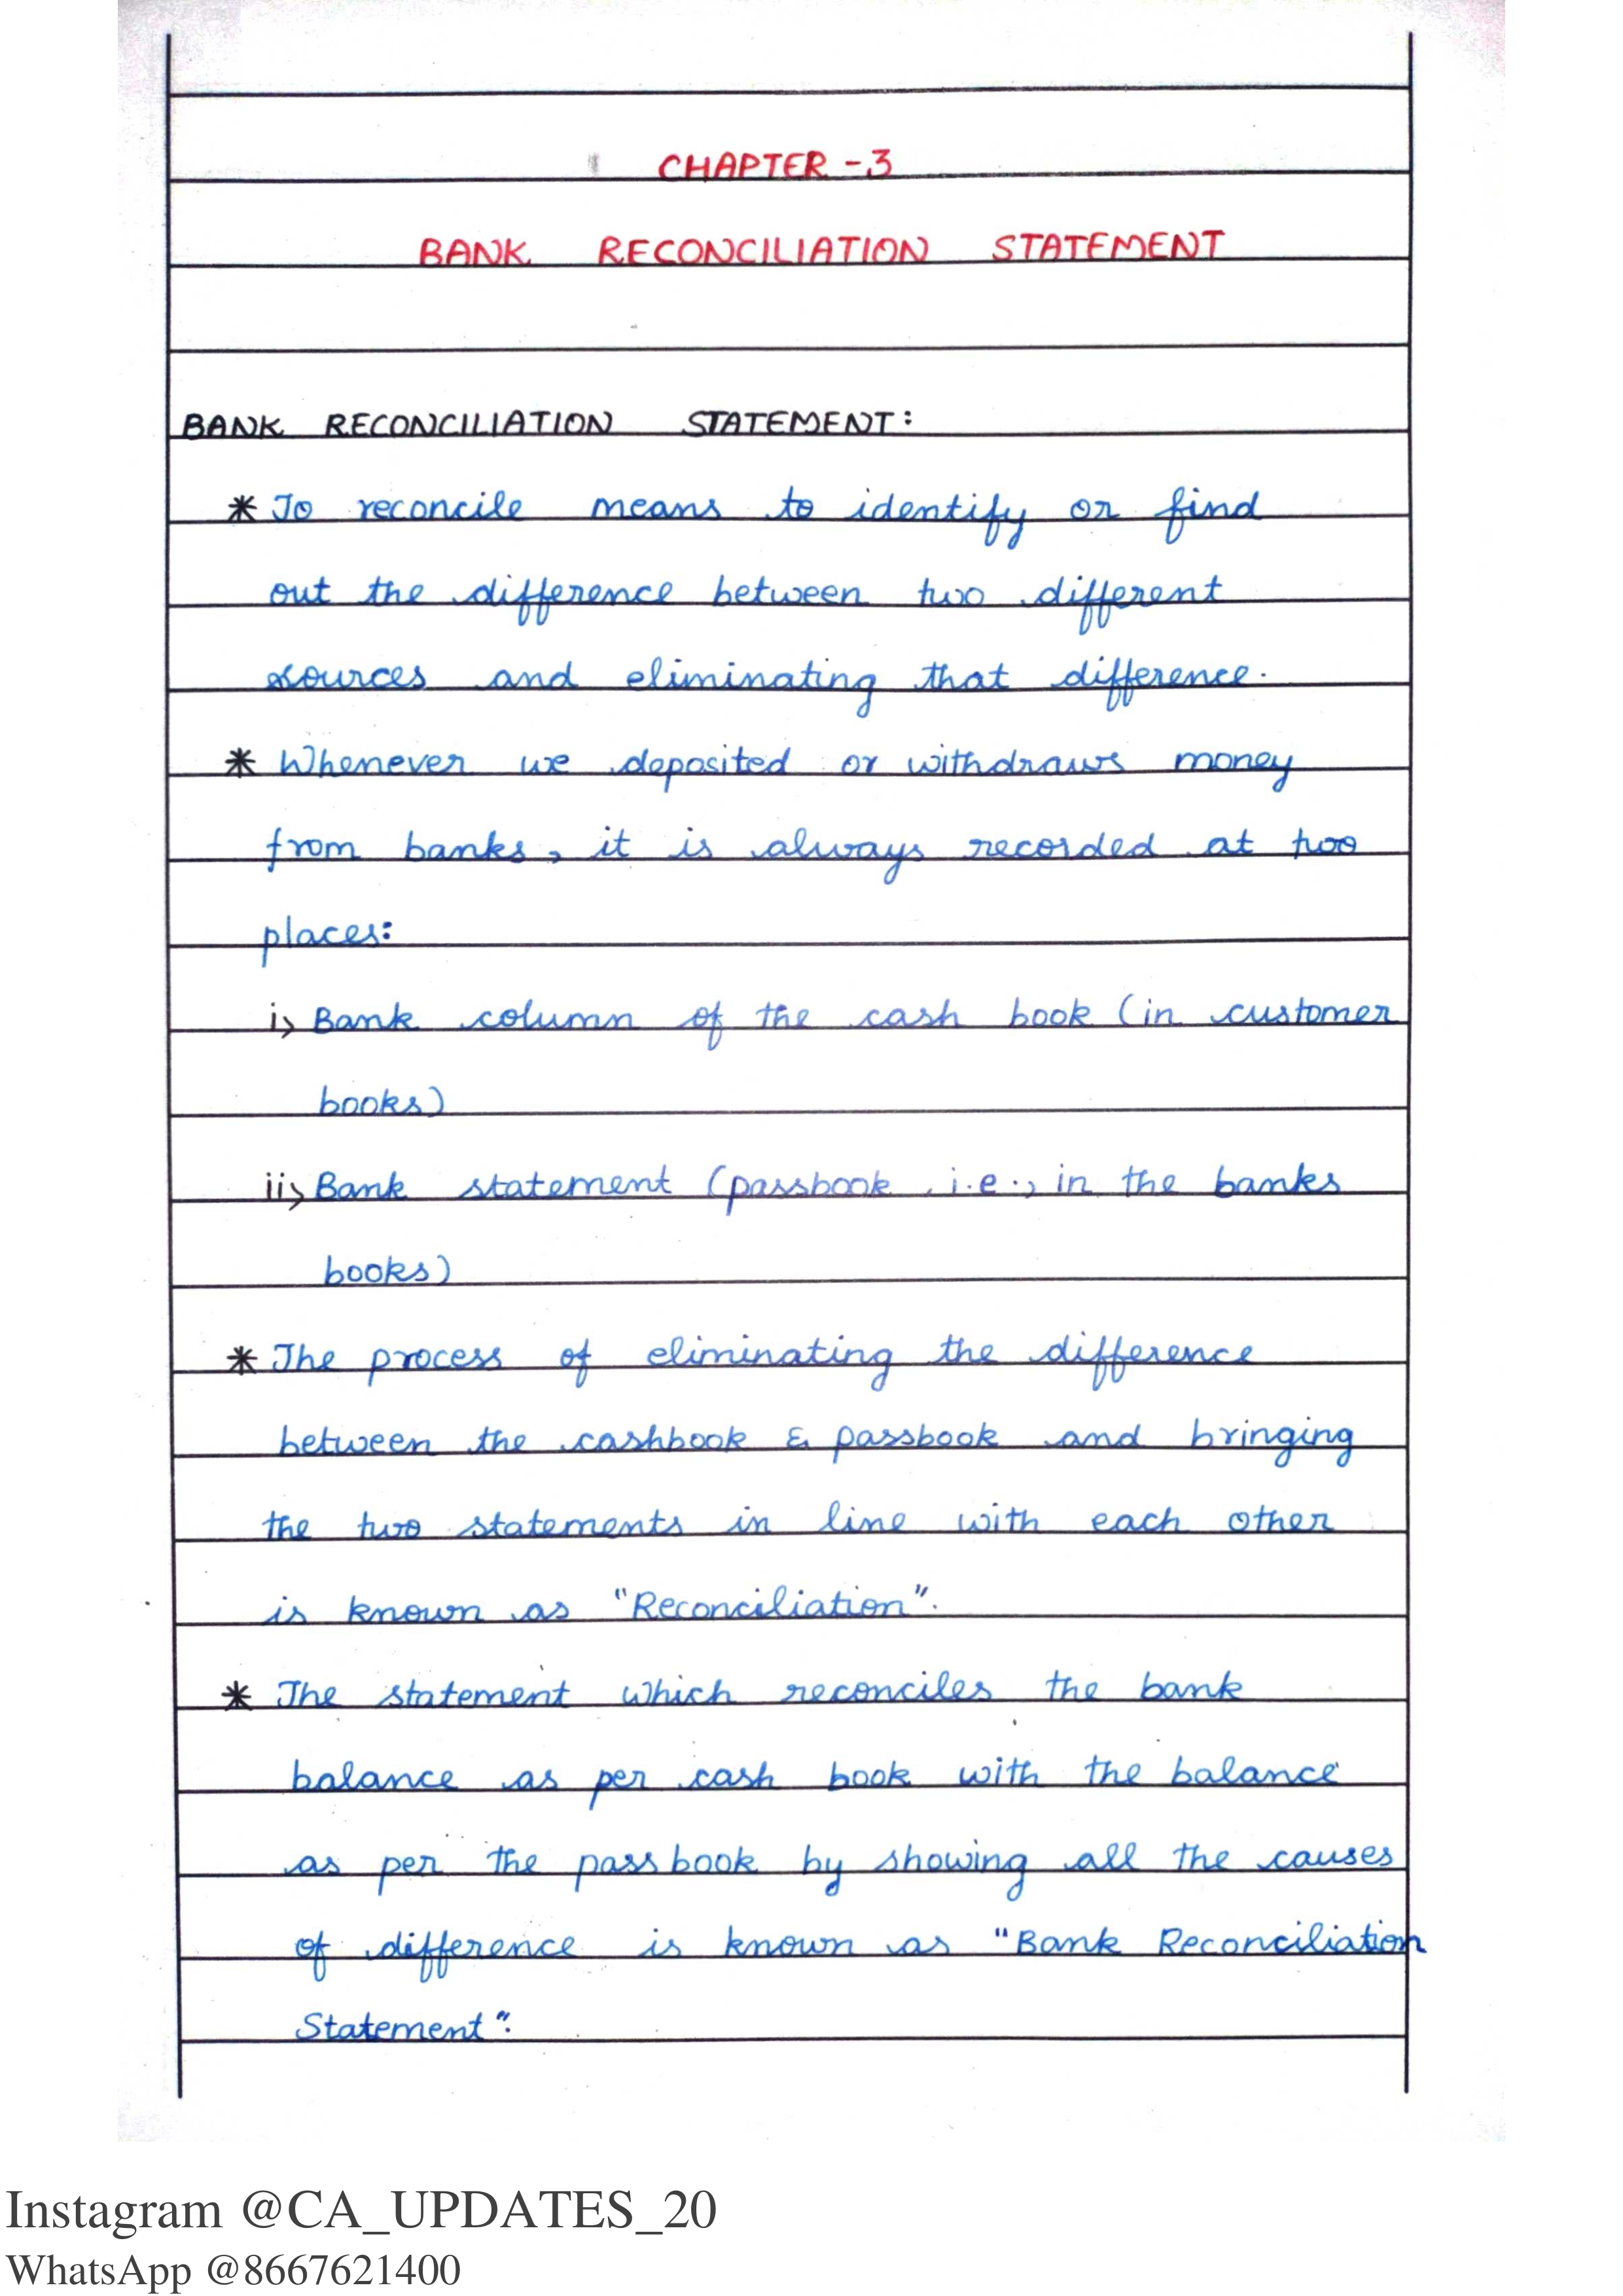 CHAPTER - 3
BANK RECONCILIATION STATEMENT
BANK RECONCILIATION STATEMENT:
* To reconcile means to identify or find
out the difference between two different
sources and eliminating that difference.
* Whenever we deposited or withdraws money
from banks, it is always recorded at two
places:
i> Bank column of the cash book (in customer
books)
ii> Bank statement (passbook, i.e., in the banks
books)
* The process of eliminating the difference
between the cashbook & passbook and bringing
the two statements in line with each other
is known as "Reconciliation".
* The statement which reconciles the bank
balance as per cash book with the balance
as per the passbook by showing all the causes
of difference is known as "Bank Reconciliation
Statement".
Instagram @CA_UPDATES_20
WhatsApp @8667621400